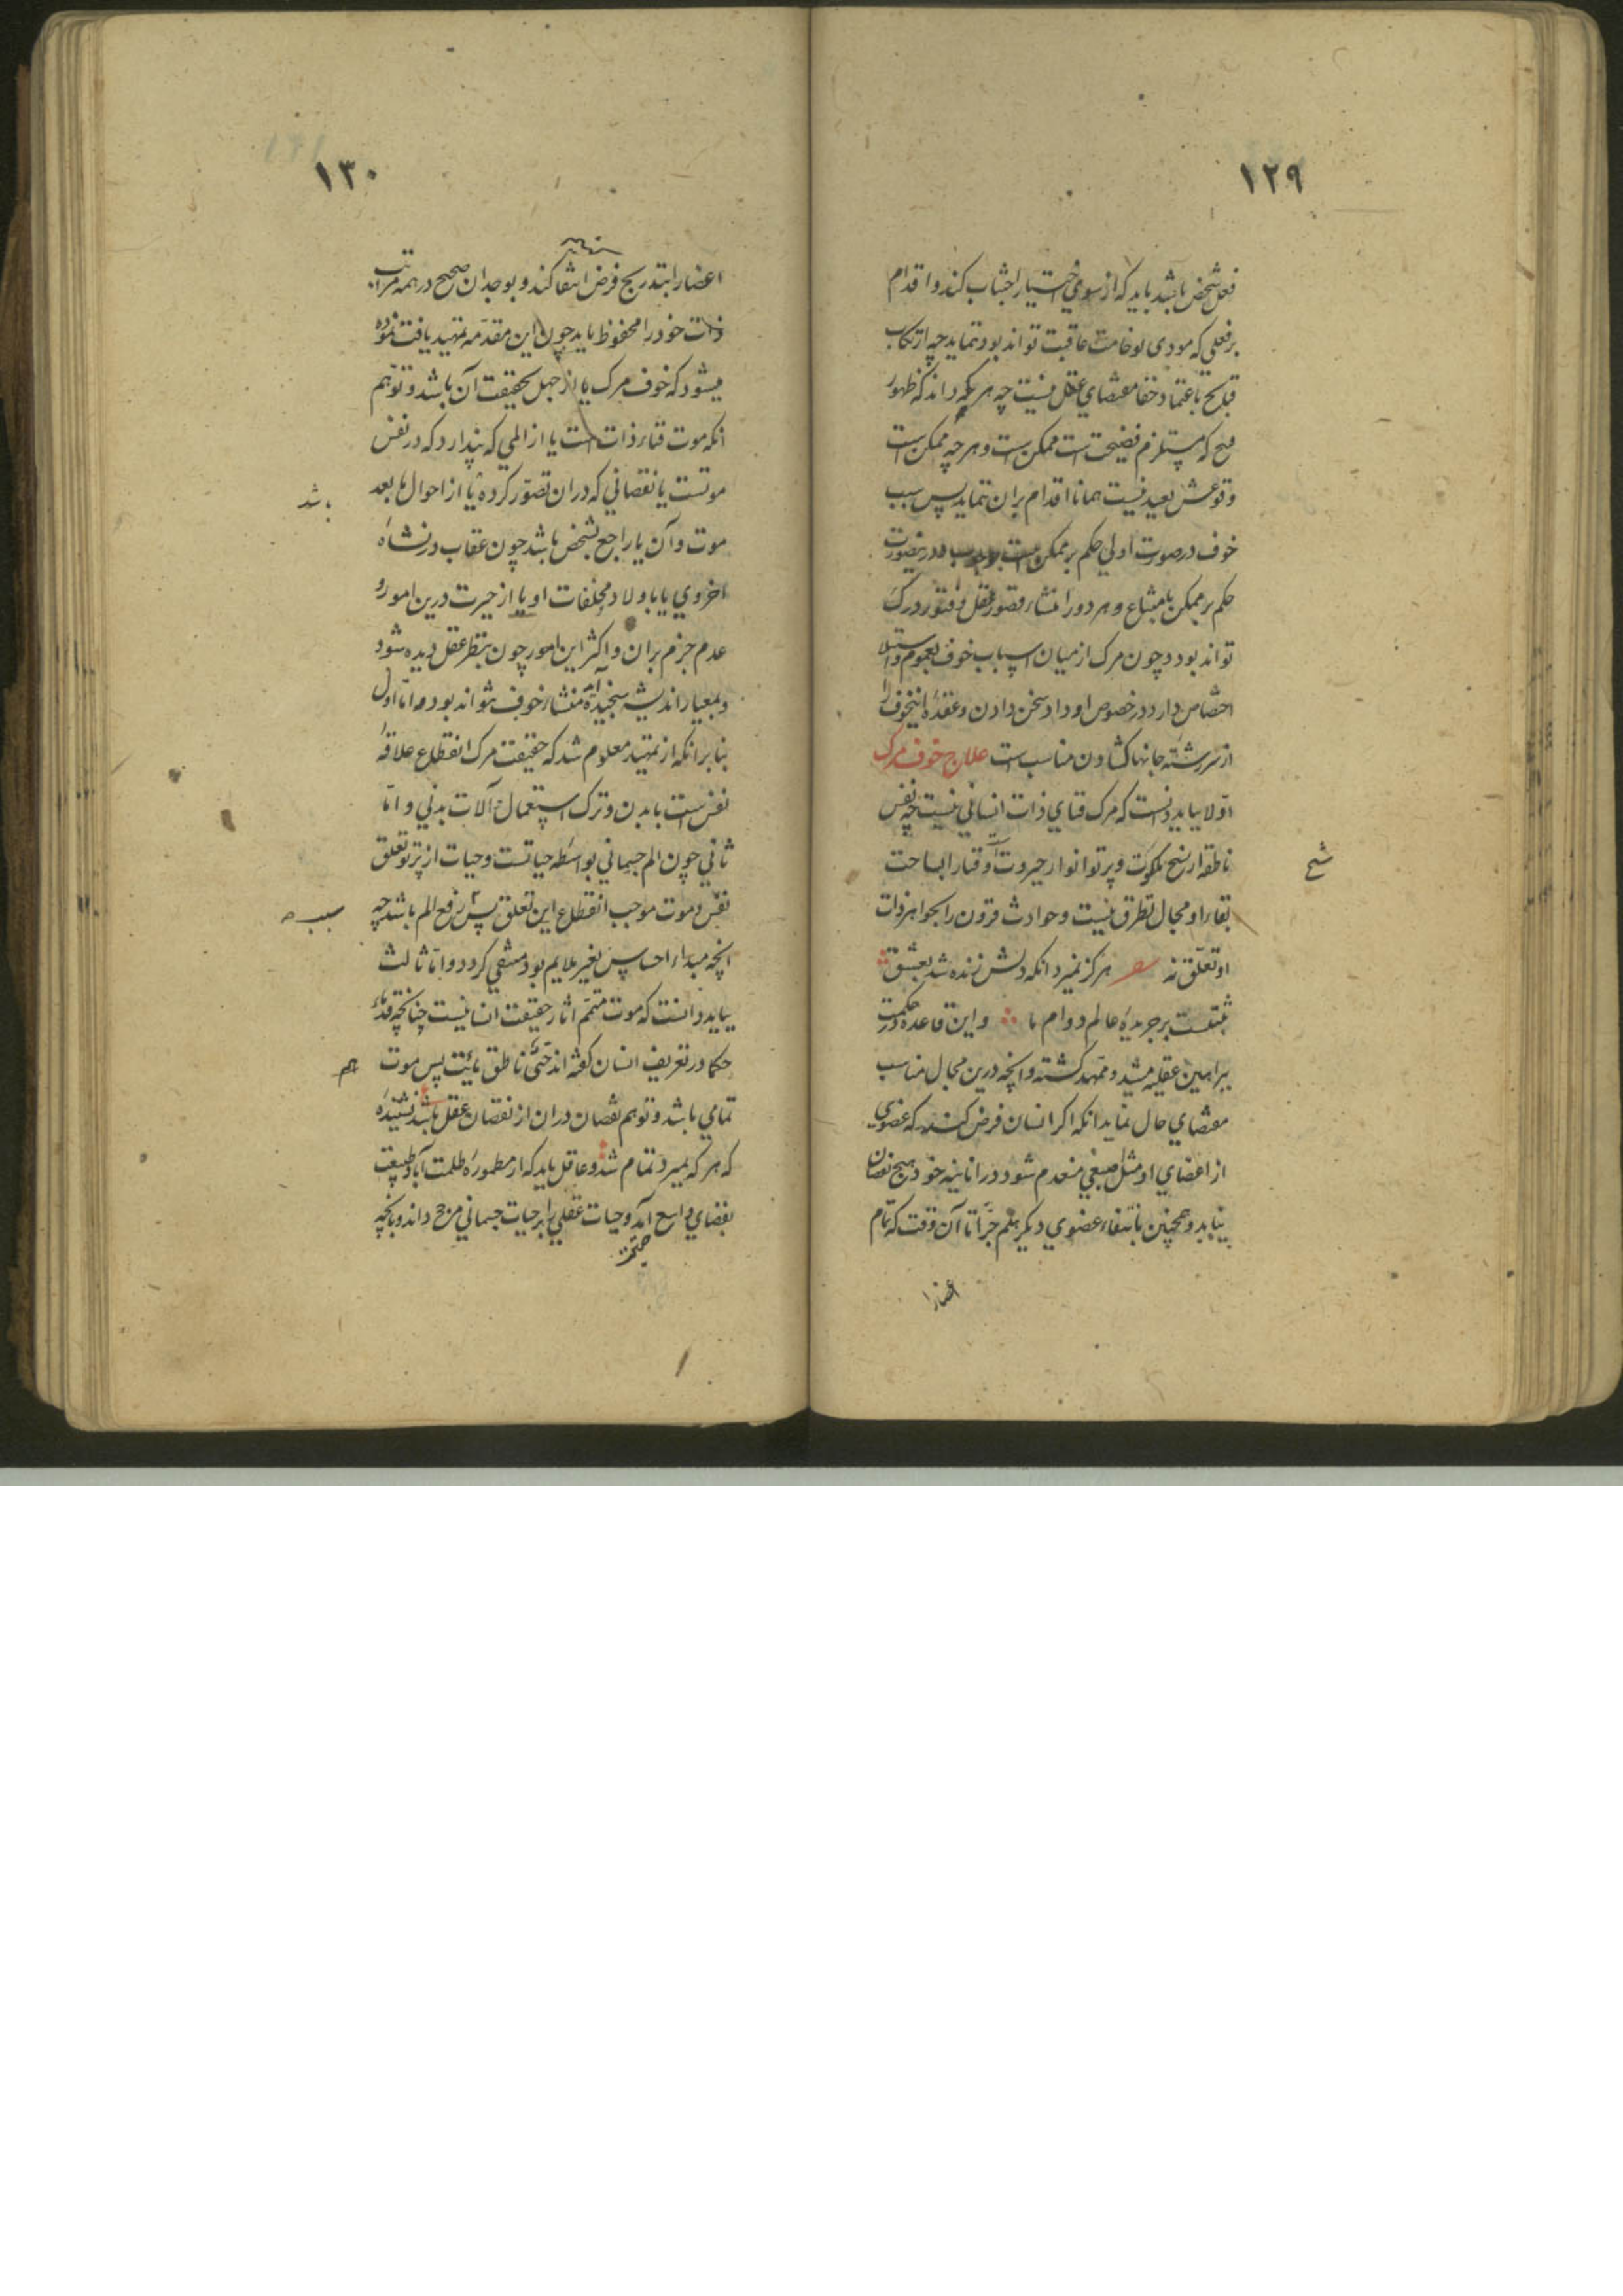 ۱۲۹
فعل شخص باشد باید که از سوء اختیار اجتناب کند و اقدام
بر فعلی که مودی بوخامت عاقبت تواند بود ننماید چه ارتکاب
قبایح باعتماد خفا مقتضای عقل نیست چه هر که داند که ظهور
قبح که مستلزم فضیحت است ممکن است و هر چه ممکن است
وقوعش بعید نیست همانا اقدام بران ننماید پس سبب
خوف در صورت اولی حکم بر ممکن است بوجوب و در ینصورت
حکم بر ممکن بامتناع و هر دو را منشاء قصور عقل و فتور درک
تواند بود و چون مرک از میان اسباب خوف بعموم و استیلا
اختصاص دارد در خصوص او داد سخن دادن و عقدهٔ اینخوف را
از سر رشتهٔ جانها کشادن مناسب است علاج خوف مرک
اولا بباید دانست که مرک فنای ذات انسانی نیست چه نفس
ناطقه از سنخ ملکوت و پرتو انوار جبروت است و فنا را بساحت
شح
بقاء او مجال تطرق نیست و حوادث قرون را بجواهر ذات
او تعلق نه هرکز نمیرد انکه دلش زنده شد بعشق
ثبتست بر جریدهٔ عالم دوام ما و این قاعده در حکمت
ببراهین عقلیه مشید و ممهد کشته و انچه درین مجال مناسب
مقتضای حال نماید انکه اکر انسان فرض کند که عضوی
از اعضای او مثل اصبعی منعدم شود در انانیه خود هیچ نقصان
نیابد و همچنین بانتفاء عضوی دیکر هلم جرّاً تا آن وقت که تمام
اعضا را
۱۳۰
اعضا را بتدریج فرض انتفا کند و بوجدان صحیح در همه مراتب
ذات خود را محفوظ یابد چون این مقدمه تمهید یافت نموده
میشود که خوف مرک یا از جهل بحقیقت آن باشد و توهم
انکه موت فناء ذات است یا از المی که پندارد که در نفس
موتست یا نقصانی که دران تصور کرده یا از احوال ما بعد
باشد
موت و آن یا راجع بشخص باشد چون عقاب در نشاه
اخروی یا باولاد و مخلفات او یا از حیرت درین امور و
عدم جزم بران و اکثر این امور چون بنظر عقل دیده شود
و بمعیار اندیشه سنجیده آید منشاء خوف نتواند بود اما اول
بنابر انکه از تمهید معلوم شد که حقیقت مرک انقطاع علاقهٔ
نفس است با بدن و ترک استعمال آلات بدنی و اما
ثانی چون الم جسمانی بواسطه حیاتست و حیات از پرتو تعلق
نفس و موت موجب انقطاع این تعلق پس رفع الم باشد چه
سبب
انچه مبداء احساس بغیر ملایم بود منتفی کردد و اما ثالث
بباید دانست که موت متمم اثار حقیقت انسانیست چنانچه قدماء
حکما در تعریف انسان کفته اند حیّ ناطق مایت پس موت
هم
تمامی باشد و توهم نقصان دران از نقصان عقل باشد نشنیدهٔ
که هر که بمیرد تمام شد و عاقل باید که از مطمورهٔ ظلمت آباد طبیعت
بفضای واسع آید و حیات عقلی را بر حیات جسمانی مرجح داند و بانچه